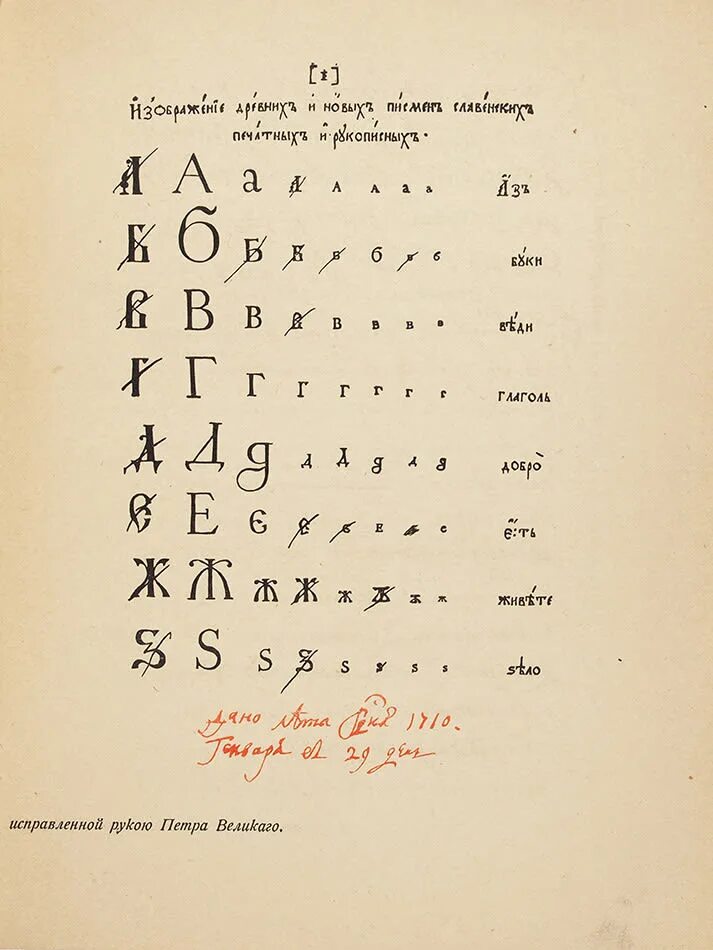 [1]
И҆зображе́нїе дре́внихъ и҆ но́выхъ писме́нъ славе́нскихъ
печа́тныхъ и҆ рꙋкопи́сныхъ.
А А а А А А а а А҆́зъ
Б Б Б Б Б б Б б бꙋ́ки
В В В В В В В В вѣ́ди
Г Г Г Г Г Г Г Г глаголь
Д Д д Д Д д Д д добро̀
Є Е Є Є Є Е Є Є є҆́сть
Ж Ж Ж Ж Ж Ж Ж Ж живѣ́те
Ѕ Ѕ Ѕ Ѕ Ѕ Ѕ Ѕ Ѕ ѕѣло
дано лѣта 1710.
Генваря 29 день
исправленной рукою Петра Великаго.